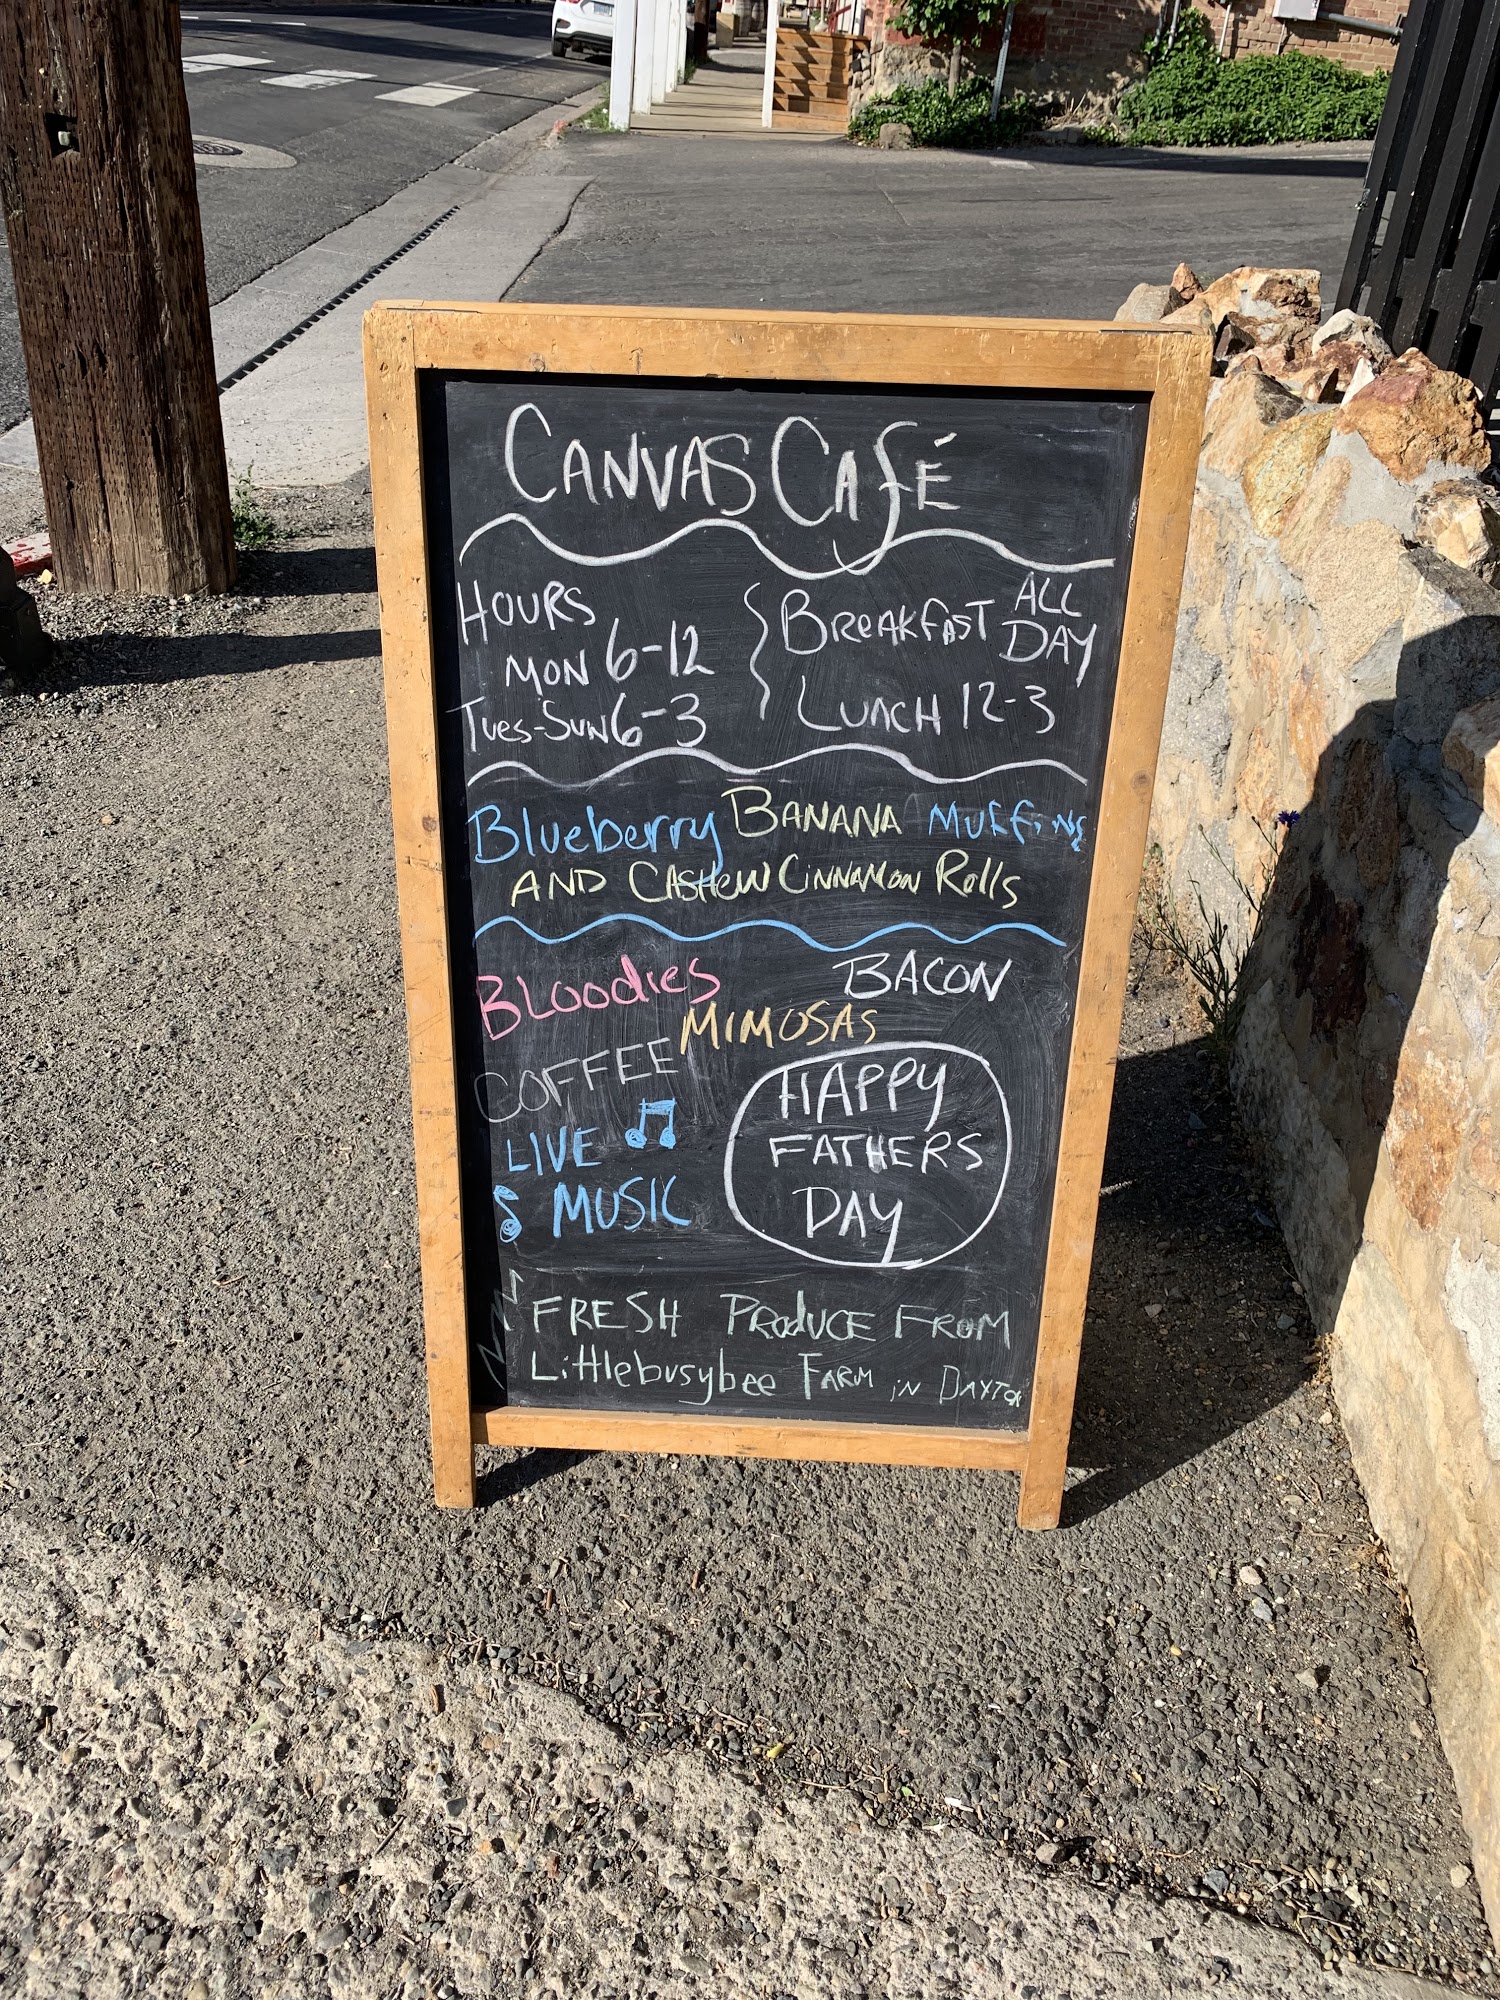 CANVAS CAfé
HOURS
MON 6-12
TUES-SUN 6-3
BREAKFAST ALL DAY
LUNCH 12-3
Blueberry BANANA MUFFINS
AND CASHEW CINNAMON Rolls
BLOODIES
BACON
MIMOSAS
COFFEE
LIVE
MUSIC
HAPPY
FATHERS
DAY
FRESH PRODUCE FROM
Littlebusybee FARM iN DAYTON